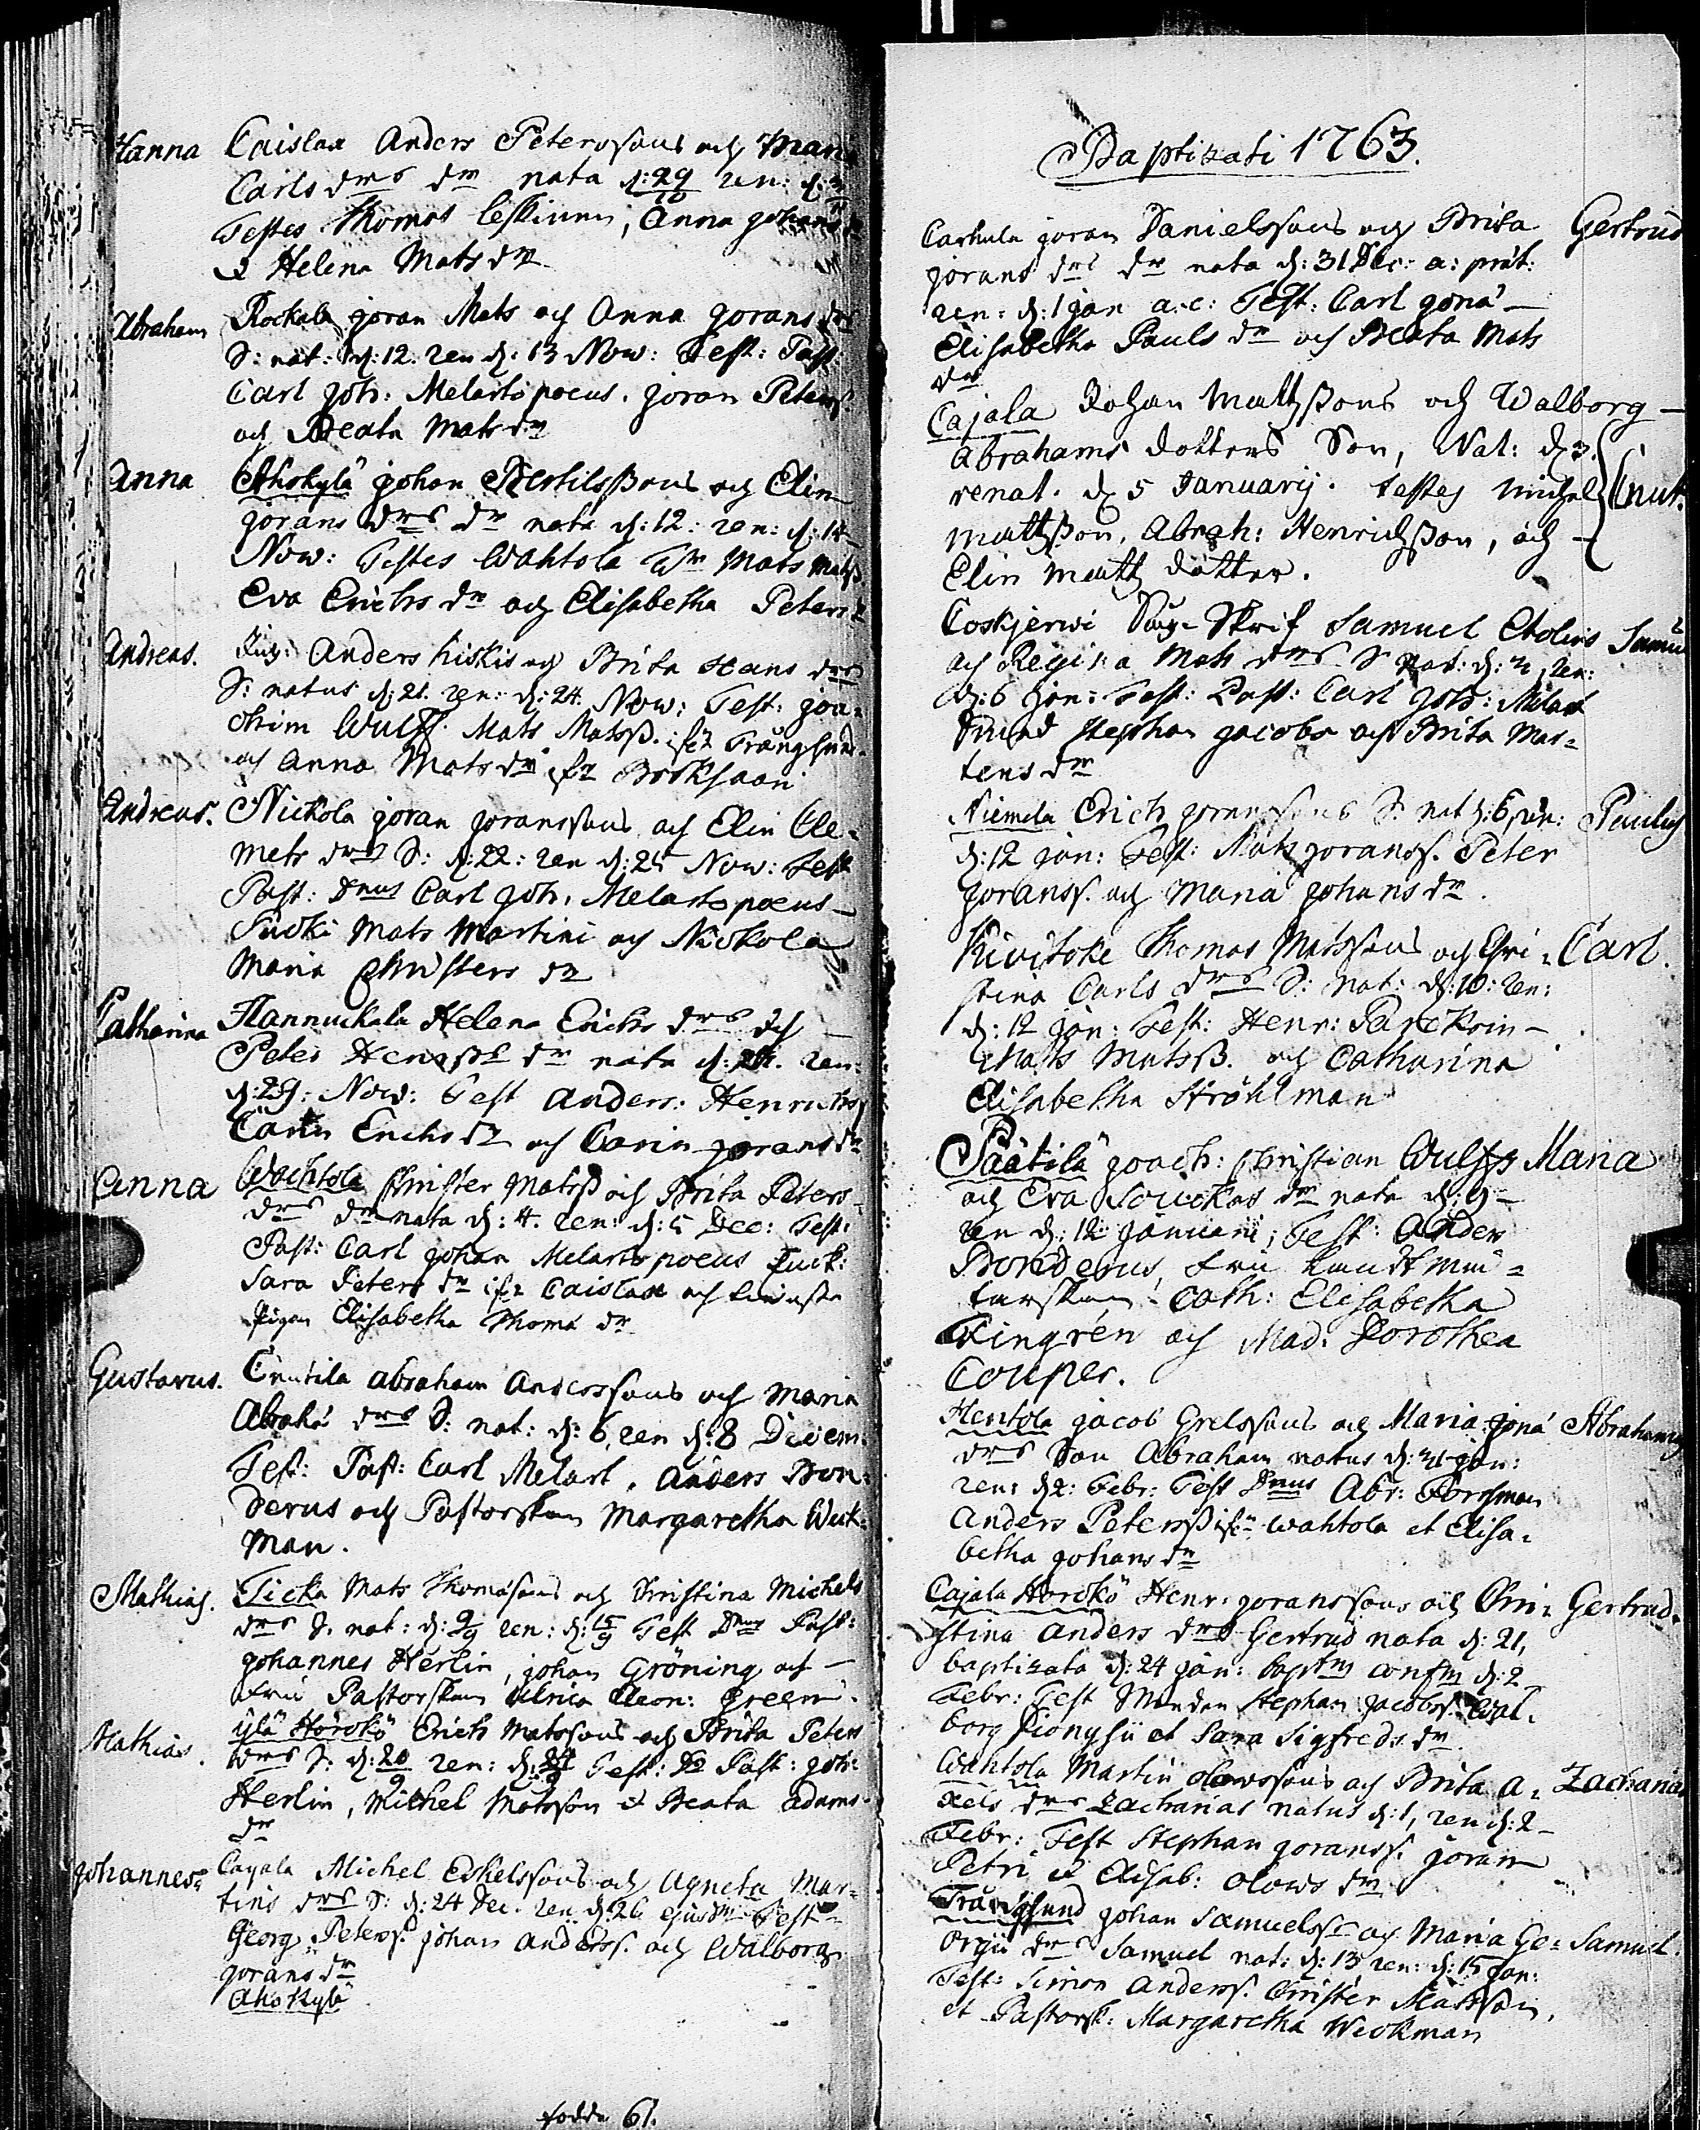 Hanna Caislax Anders Peterssons och Maria
Carls drs dr nata d: 29/10 ren: d: 3
Testes Thomas Leskinen, Anna Johans
& Helena Mats dr
Abraham Rockala Joran Mats och Anna Jorans drs
S: nat: d: 12. ren d: 13 Now: Test: Past:
Carl Joh: Melartopoeus. Joran Peterss.
och Beata Mats dr
Anna Ahokylä Johan Bertilssons och Elin
Jorans drs dr nata d: 12: ren: d: 14
Now: Testes Wahtola Mats Matss
Eva Erichs dr och Elisabetha Peters
Andreas. Anders Kiskis och Brita Hans drs
S: natus d: 21. ren: d: 24. Now: Test: Joa-
chim Wulff. Mats Matsß. ifr Trångsund.
och Anna Mats dr ifr Borksaari
Andreas. Nickola Joran Joranssons och Elin Cle-
mets drs S: d: 22: ren d: 25 Now: Test
Past: Dnus Carl Joh. Melartopoeus
Mats Martini och Nickola
Maria Christers dr
Catharina Hannuckala Helena Erichs drs och
Peter Henrss dr nata d: ren:
d: 29: Now: Test Anders: Henrichs
Carin Erichs dr och Carin Jorans dr
Anna Wachtola Christer Matsß och Brita Peters
drs dr nata d: 4. ren: d: 5 Dec: Test:
Past: Carl Johan Melartopoeus
Sara Peters dr ifr Caislax och
Pigan Elisabetha Thomæ dr
Gustavus. Cruutila Abraham Anderssons och Maria
Abrahā drs S: nat: d: 6, ren d: 8 Decem:
Test: Past: Carl Melart, Anders Bon-
derus och Pastorskan Margaretha Weck-
man.
Mathias. Ticka Mats Thomæsons och Christina Michels
drs S. nat: d: 9/9 ren: d: 15/9 Test Dnus Past:
Johannes Herlin, Johan Gröning och
Fru Pastorskan Ulrica Eleon: Green.
Mathias. Ylä Horckö Erich Matssons och Brita Peters
drs S: d: 20/9 ren: d: Test: Past: Joh:
Herlin, Michel Matsson & Beata Adams
dr
Johannes Cayala Michel Eskelssons och Agneta Mar-
tins drs S: d: 24 Dec. ren d: 26 ejusdm Test
Georg Peterss. Johan Anderss. och Walborg
Jorans dr
Ahokylä
födda 61.
Baptizati 1763.
Carhula Joran Danielssons och Brita Gertrud
Jorans drs dr nata d: 31 Dec: a: præt:
ren: d: 1 Jan a: c: Test: Carl Jonæ
Elisabetha Pauls dr och Beata Mats
dr
Cajala Johan Mattssons och Walborg
Abrahams dotters Son, Nat: d 3.
renat. d 5 Januarij. testes Michel Cnut.
Mattsson, Abrah: Henrichsson, och
Elin Matts dotter.
Coskjerwi Skrif Samuel Cholers Samu
och Regina Mats drs S Nat: d: 2, ren:
d: 6 Jan: Test: Past: Carl Joh: Melart
Stephan Jacobs och Brita Mar-
tens dr
Niemela Erich Joranssons S: nat d: 6, ren: Paulus
d: 12 Jan: Test: Mats Joranss. Peter
Joranss. och Maria Johans dr.
Kivitoke Thomas Matssons och Chri- Carl.
stina Carls drs S: Nat: d: 10: ren:
d: 12 Jan: Test: Henr:
Mats Matsß. och Catharina
Elisabetha Ströhlman
Päätilä Joach: Christian Wulffs Maria
och Eva dr nata d: 9
ren d: 12 Januarii; Test: Anders
Bonderus, Fru Landtmä-
tarskan Cath: Elisabetha
Fingrén och Mad: Dorothea
Couper.
Hentola Jacob Grelssons och Maria Jonæ Abrahamus
drs Son Abraham natus d: 31 Jan:
ren: d 2: Febr: Test Dnus Abr: Forsman
Anders Petersß ifrn Wahtola et Elisa-
betha Johans dr
Cajala Horckö Henr: Joranssons och Chri- Gertrud.
stina Anders drs Gertrud nata d: 21,
baptizata d: 24 Jan: baptm confm d: 2
Febr: Test Stephan Jacobss. Wal-
borg Dionysii et Sara Sigfreds dr
Wahtola Martin Olowssons och Brita A- Zacharias
xels drs Zacharias natus d: 1, ren d: 2
Febr: Test Stephan Joranss. Joran
Petri & Elisab: Olows dr
Trångsund Johan Samuelss och Maria Ge- Samuel.
orgii drs Samuel nat: d: 13 ren: d: 15 Jan:
Test: Simon Anderss. Christer Matsson,
et Pastorsk: Margaretha Weckman